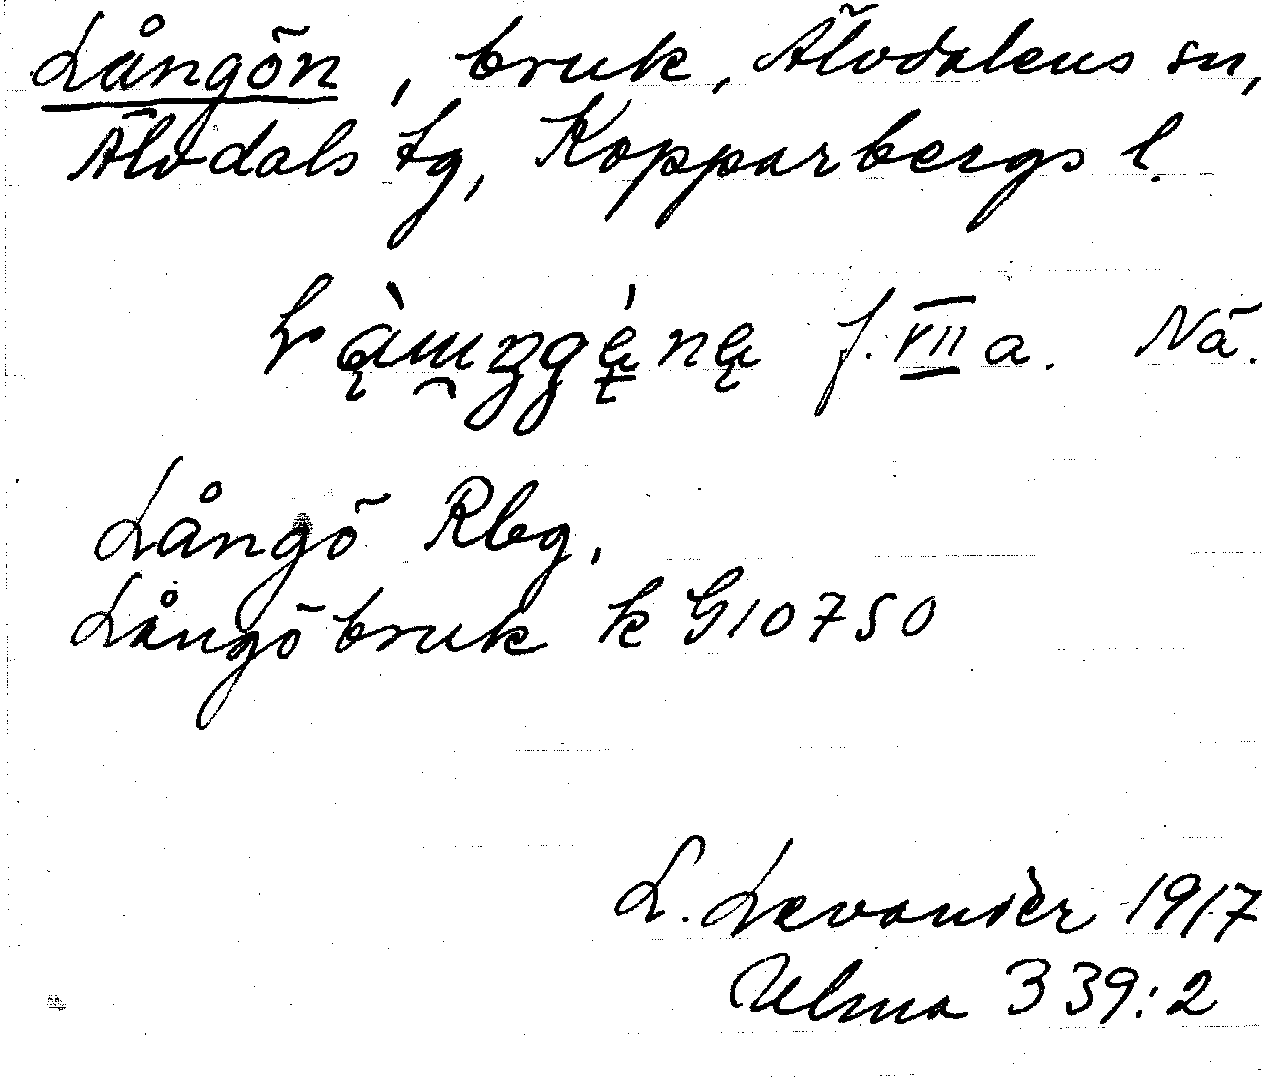 Långön, bruk, Älvdalens sn,
Älvdals tg, Kopparbergs l.
f. VII a. Nä.
Långö Rbg,
Långöbruk k G10750
L. Levander 1917
Ulma 339:2